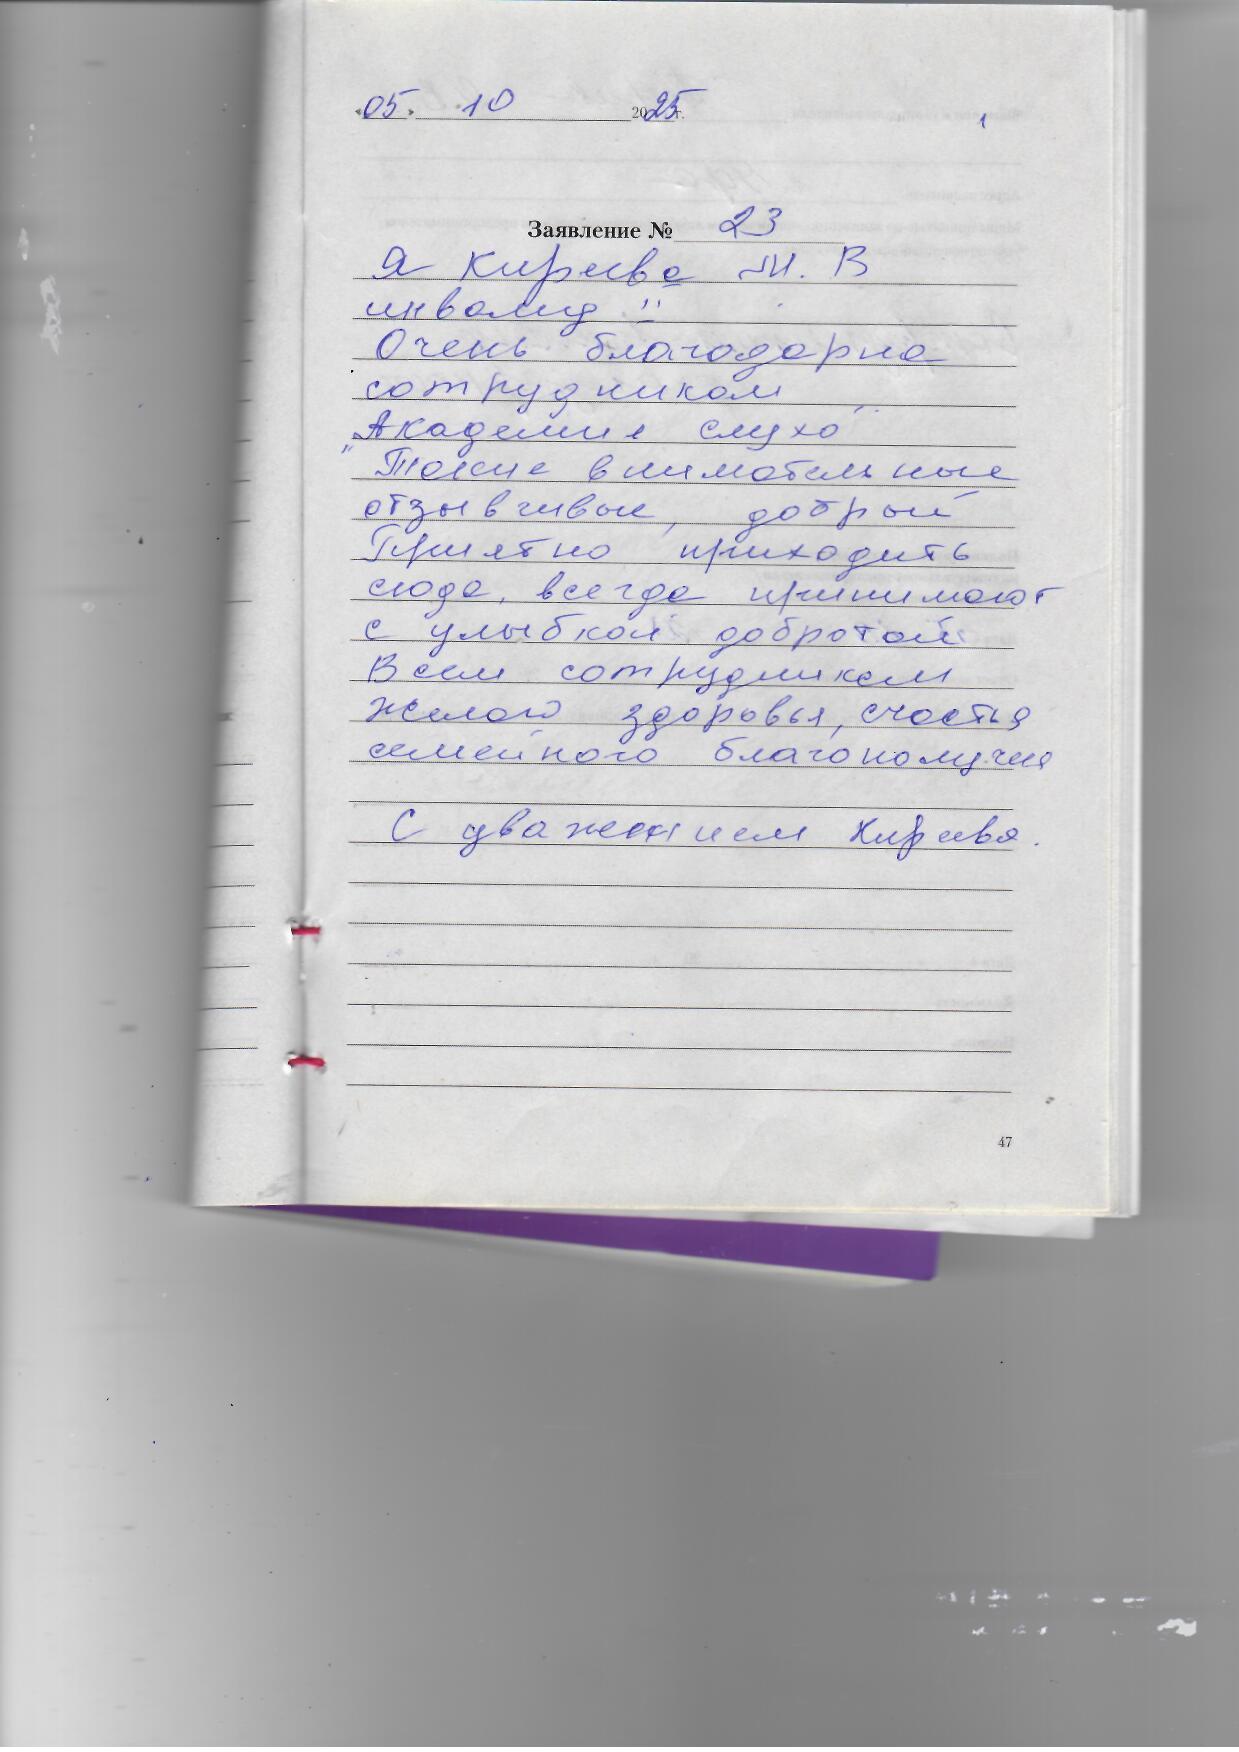 «05» 10 2025 г.
1
Заявление № 23
Я Киреева М. В
инвалид II
Очень благодарна
сотрудникам
"Академия слуха"
Такие внимательные
отзывчивые, добрый
Приятно приходить
сюда, всегда принимают
с улыбкой добротой
Всем сотрудникам
желаю здоровья, счастья
семейного благополучия
С уважением Киреева.
47